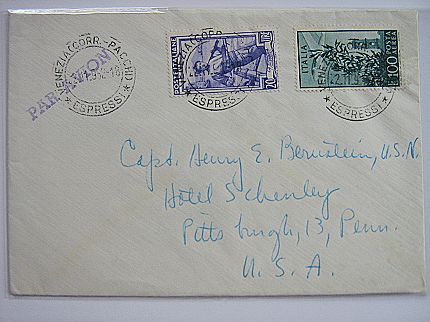 VENEZIA CORR.-PACCHI
ESPRESSI
PAR AVION
POSTE ITALIANE
ESPRESSI
ITALIA
POSTA AEREA
100
ESPRESSI
Capt. Henry E. Bernstein, U.S.N.
Hotel Schenley
Pittsburgh, 13, Penn.
U.S.A.